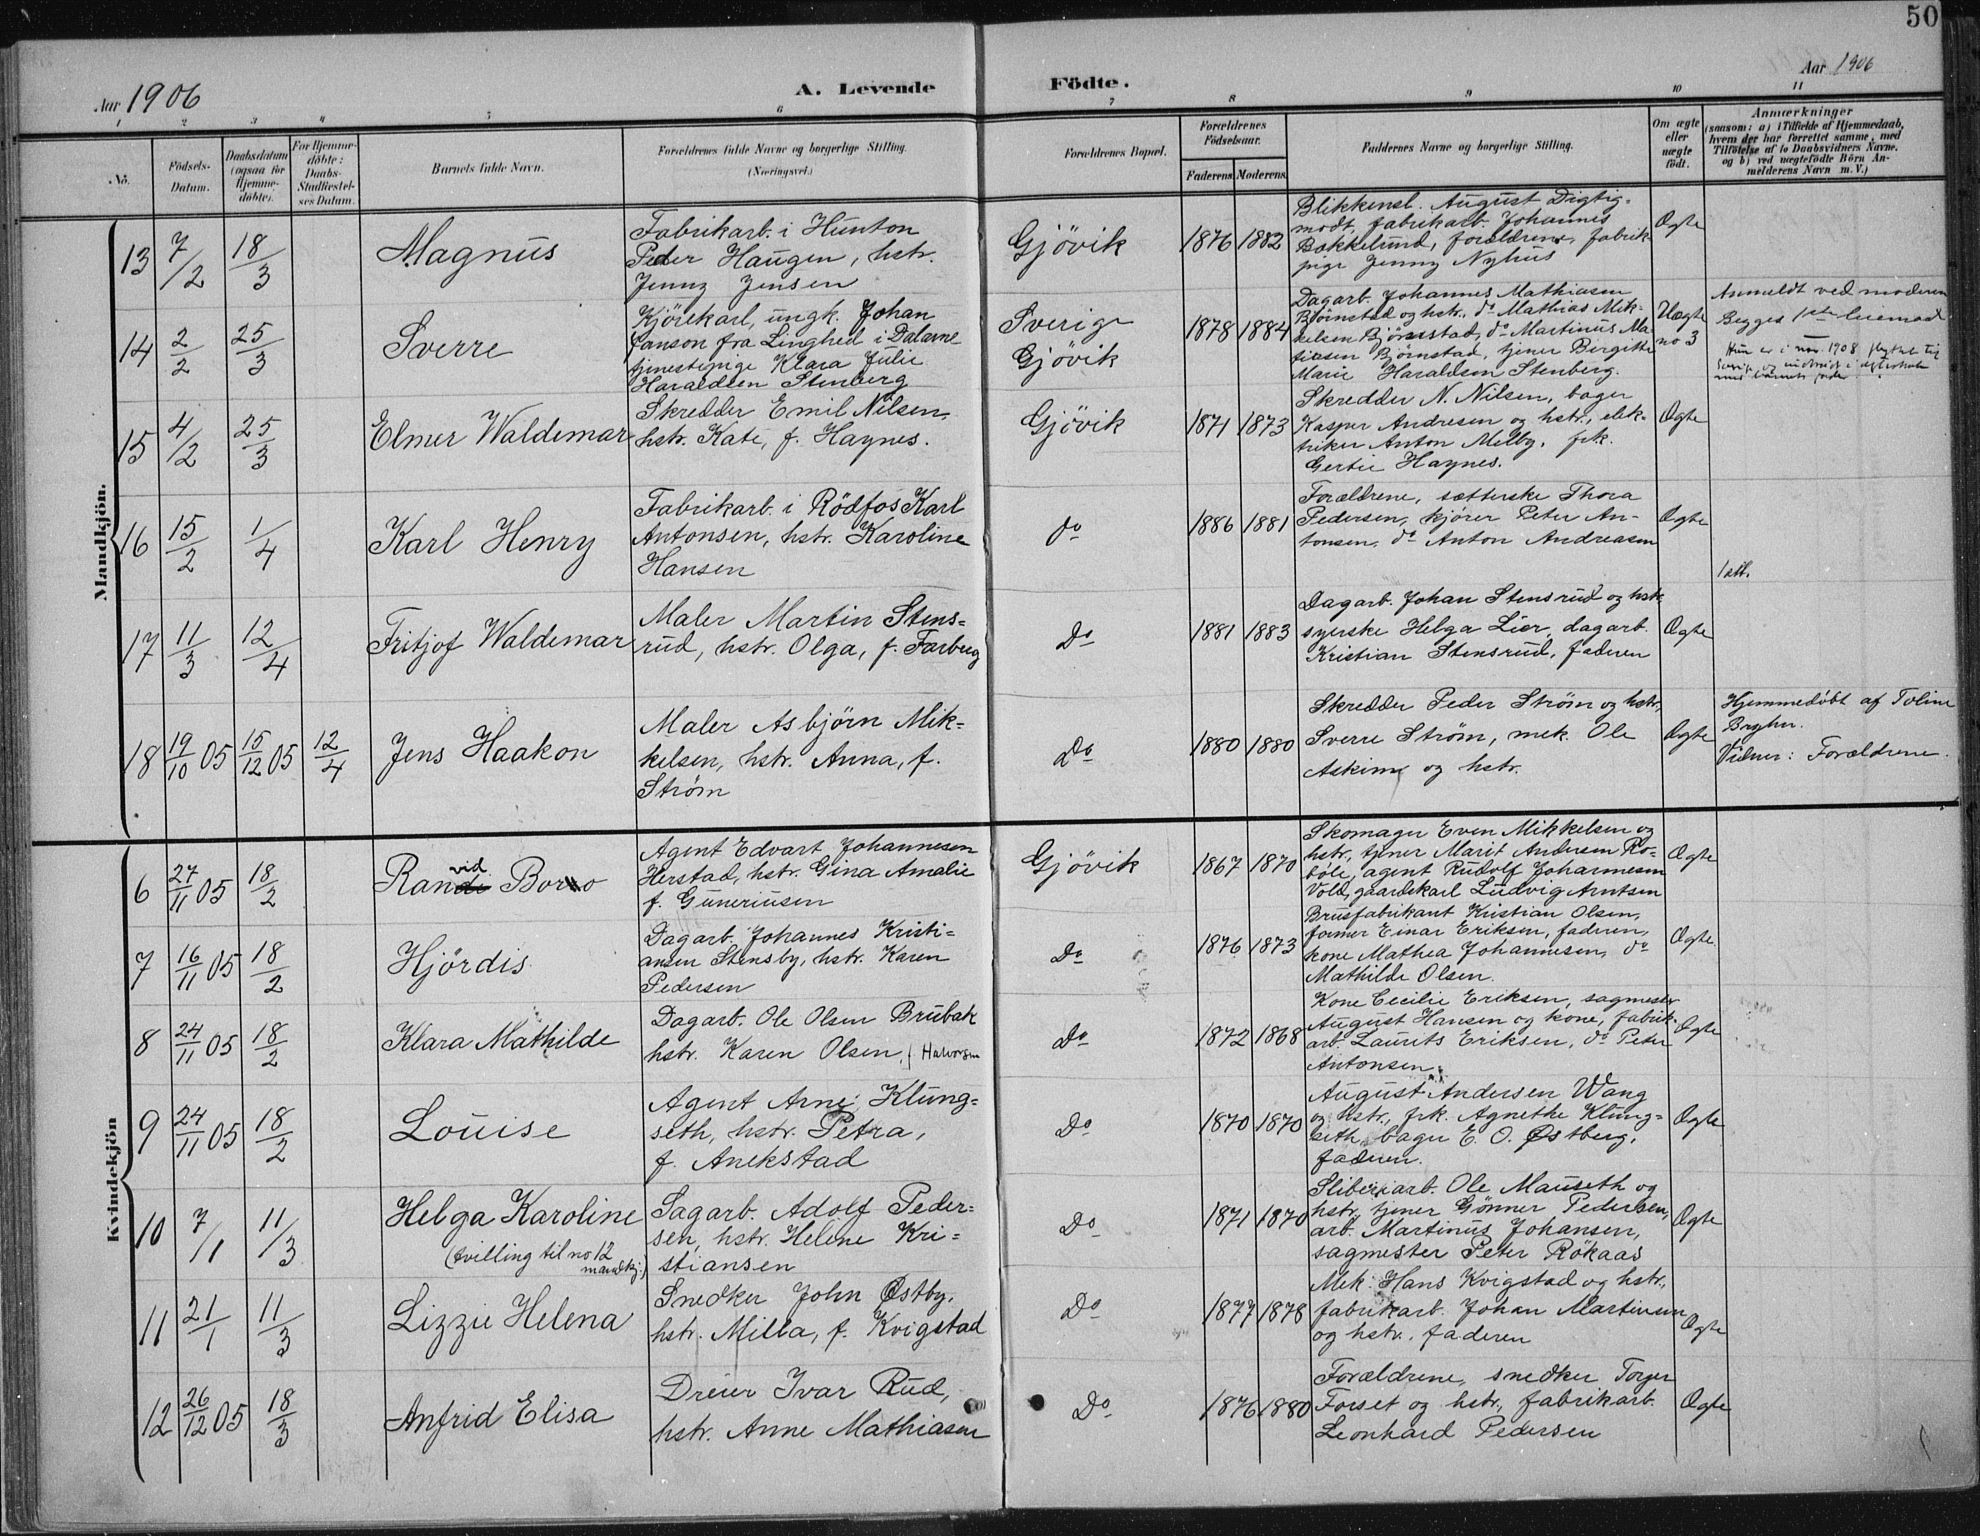 50
Aar 1906
A. Levende
Födte.
Aar 1906
1 2 3 4 5 6 7 8 9 10 11
No.
Födsels-
Datum.
Daabsdatum
(ogsaa for
Hjemme-
döbte).
For Hjemme-
döbte:
Daabs-
Stadfæstel-
ses Datum.
Barnets fulde Navn.
Forældrenes fulde Navne og borgerlige Stilling.
(Næringsvei.)
Forældrenes Bopæl.
Forældrenes
Födselsaar.
Faderens. Moderens.
Faddernes Navne og borgerlige Stilling.
Om ægte
eller
uægte
født.
Anmærkninger
(saasom: a) i Tilfælde af Hjemmedaab,
hvem der har forrettet samme, med
Tilföielse af to Daabsvidners Navne.
og b) ved uægtefödte Börn An-
melderens Navn m. V.)
Mandkjön.
13 7/2 18/3
Magnus
Fabrikarb. i Hunton
Peder Haugen, hstr.
Jenny Jensen
Gjövik
1876 1882
Blikkensl. August Digtig-
modt, fabrikarb. Johannes
Bakkelund, forældrene, fabrik-
pige Jenny Nyhus
Ægte
14 2/2 25/3
Sverre
Kjörekarl, ungk. Johan
Janson fra Linghed i Dalarne
tjenestepige Klara Julie
Haraldsen Stenberg
Sverige
Gjövik
1878 1884
Dagarb. Johannes Mathiasen
Bjørnstad og hstr., do Mathias Mik-
kelsen Bjørnstad, do Martinus Ma-
tiesen Bjørnstad, tjener Birgitte
Marie Haraldsen Stenberg.
Uægte
no 3
Anmeldt ved moderen
Begges 1ste leiermaal
Hun er i nov. 1908 flyttet til
Sverige og indtraadt i ægteskab
med barnets fader
15 4/2 25/3
Elmer Waldemar
Skredder Emil Nilsen
hstr. Kate, f. Haynes.
Gjövik
1871 1873
Skredder N. Nilsen, bager
Kasper Andresen og hstr., elek-
triker Anton Melby, frk.
Gertie Haynes.
Ægte
16 15/2 1/4
Karl Henry
Fabrikarb. i Rödfos Karl
Antonsen, hstr. Karoline
Hansen
do
1886 1881
Forældrene, sætterske Thora
Pedersen, kjører Peter An-
tonsen, do Anton Andreasen
Ægte
1 att.
17 11/3 12/4
Fritjof Waldemar
Maler Martin Stens-
rud, hstr. Olga, f. Farberg
Do
1881 1883
Dagarb. Johan Stensrud og hstr.
syerske Helga Lier, dagarb.
Kristian Stensrud, faderen
Ægte
18 19/10 05 15/12 05 12/4
Jens Haakon
Maler Asbjörn Mik-
kelsen, hstr. Anna, f.
Strøm
Do
1880 1880
Skredder Peder Strøm og hstr,
Sverre Strøm, mek. Ole
Askim og hstr.
Ægte
Hjemmedöbt af Toline
Vidner: Forældrene.
Kvindekjön
6 27/11 05 18/2
vid
Randi Borro
Agent Edvart Johannesen
Herstad, hstr. Gina Amalie
f. Guneriusen
Gjövik
1867 1870
Skomager Even Mikkelsen og
hstr., tjener Marit Andersen Ro-
bøle, agent Rudolf Johannesen
Vold, gaardskarl Ludvig Arntsen
Ægte
7 16/11 05 18/2
Hjördis
Dagarb. Johannes Kristi-
ansen Stensby, hstr. Karen
Pedersen
Do
1876 1873
Brusfabrikant Kristian Olsen,
former Einar Eriksen, faderen,
kone Mathea Johannesen, do
Mathilde Olsen.
Ægte.
8 24/11 05 18/2
Klara Mathilde
Dagarb. Ole Olsen Brubak
hstr. Karen Olsen, f. Halvorsen
Do
1872 1868
Kone Cecilie Eriksen, sagmester
August Hansen og kone, fabrik-
arb. Laurits Eriksen, do Peter
Antonsen.
Ægte
9 24/11 05 18/2
Louise
Agent Arne Klung-
seth, hstr. Petra,
f. Anekstad
Do
1870 1870
August Andersen Wang
og hstr., frk. Agnethe Klung-
seth, bager E. O. Østberg,
faderen.
Ægte
10 7/1 11/3
Helga Karoline
(tvilling til no 12
mandkj:)
Sagarb. Adolf Peder-
sen, hstr. Helene Kri-
stiansen
Do
1871 1870
Sliberiarb. Ole Mauseth og
hstr., tjener Gönner Pedersen,
arb. Martinus Johansen,
sagmester Peter Rökaas
Ægte
11 21/1 11/3
Lizzie Helena
Snedker John Østby,
hstr. Milla, f. Kvigstad
Do
1877 1878
Mek. Hans Kvigstad og hstr.,
fabrikarb. Johan Martinsen
og hstr., faderen
Ægte
12 26/12 05 18/3
Anfrid Elisa
Dreier Ivar Rud,
hstr. Anne Mathiasen
Do
1876 1880
Forældrene, snedker Torger
Forset og hstr., fabrikarb.
Leonhard Pedersen
Ægte